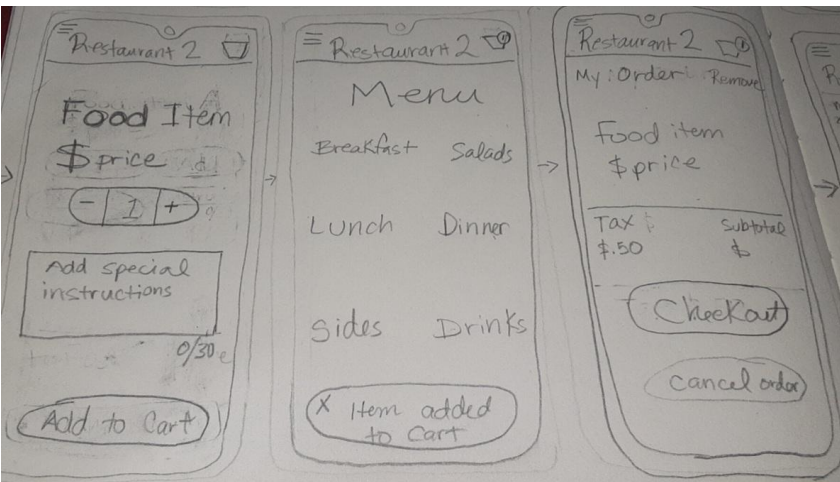 Restaurant 2
Food Item
$ price
- 1 +
Add special
instructions
0/30
Add to Cart
Restaurant 2
Menu
Breakfast Salads
Lunch Dinner
Sides Drinks
X Item added
to Cart
Restaurant 2 1
My Order Remove
Food item
$ price
Tax Subtotal
$.50 $
Checkout
cancel order